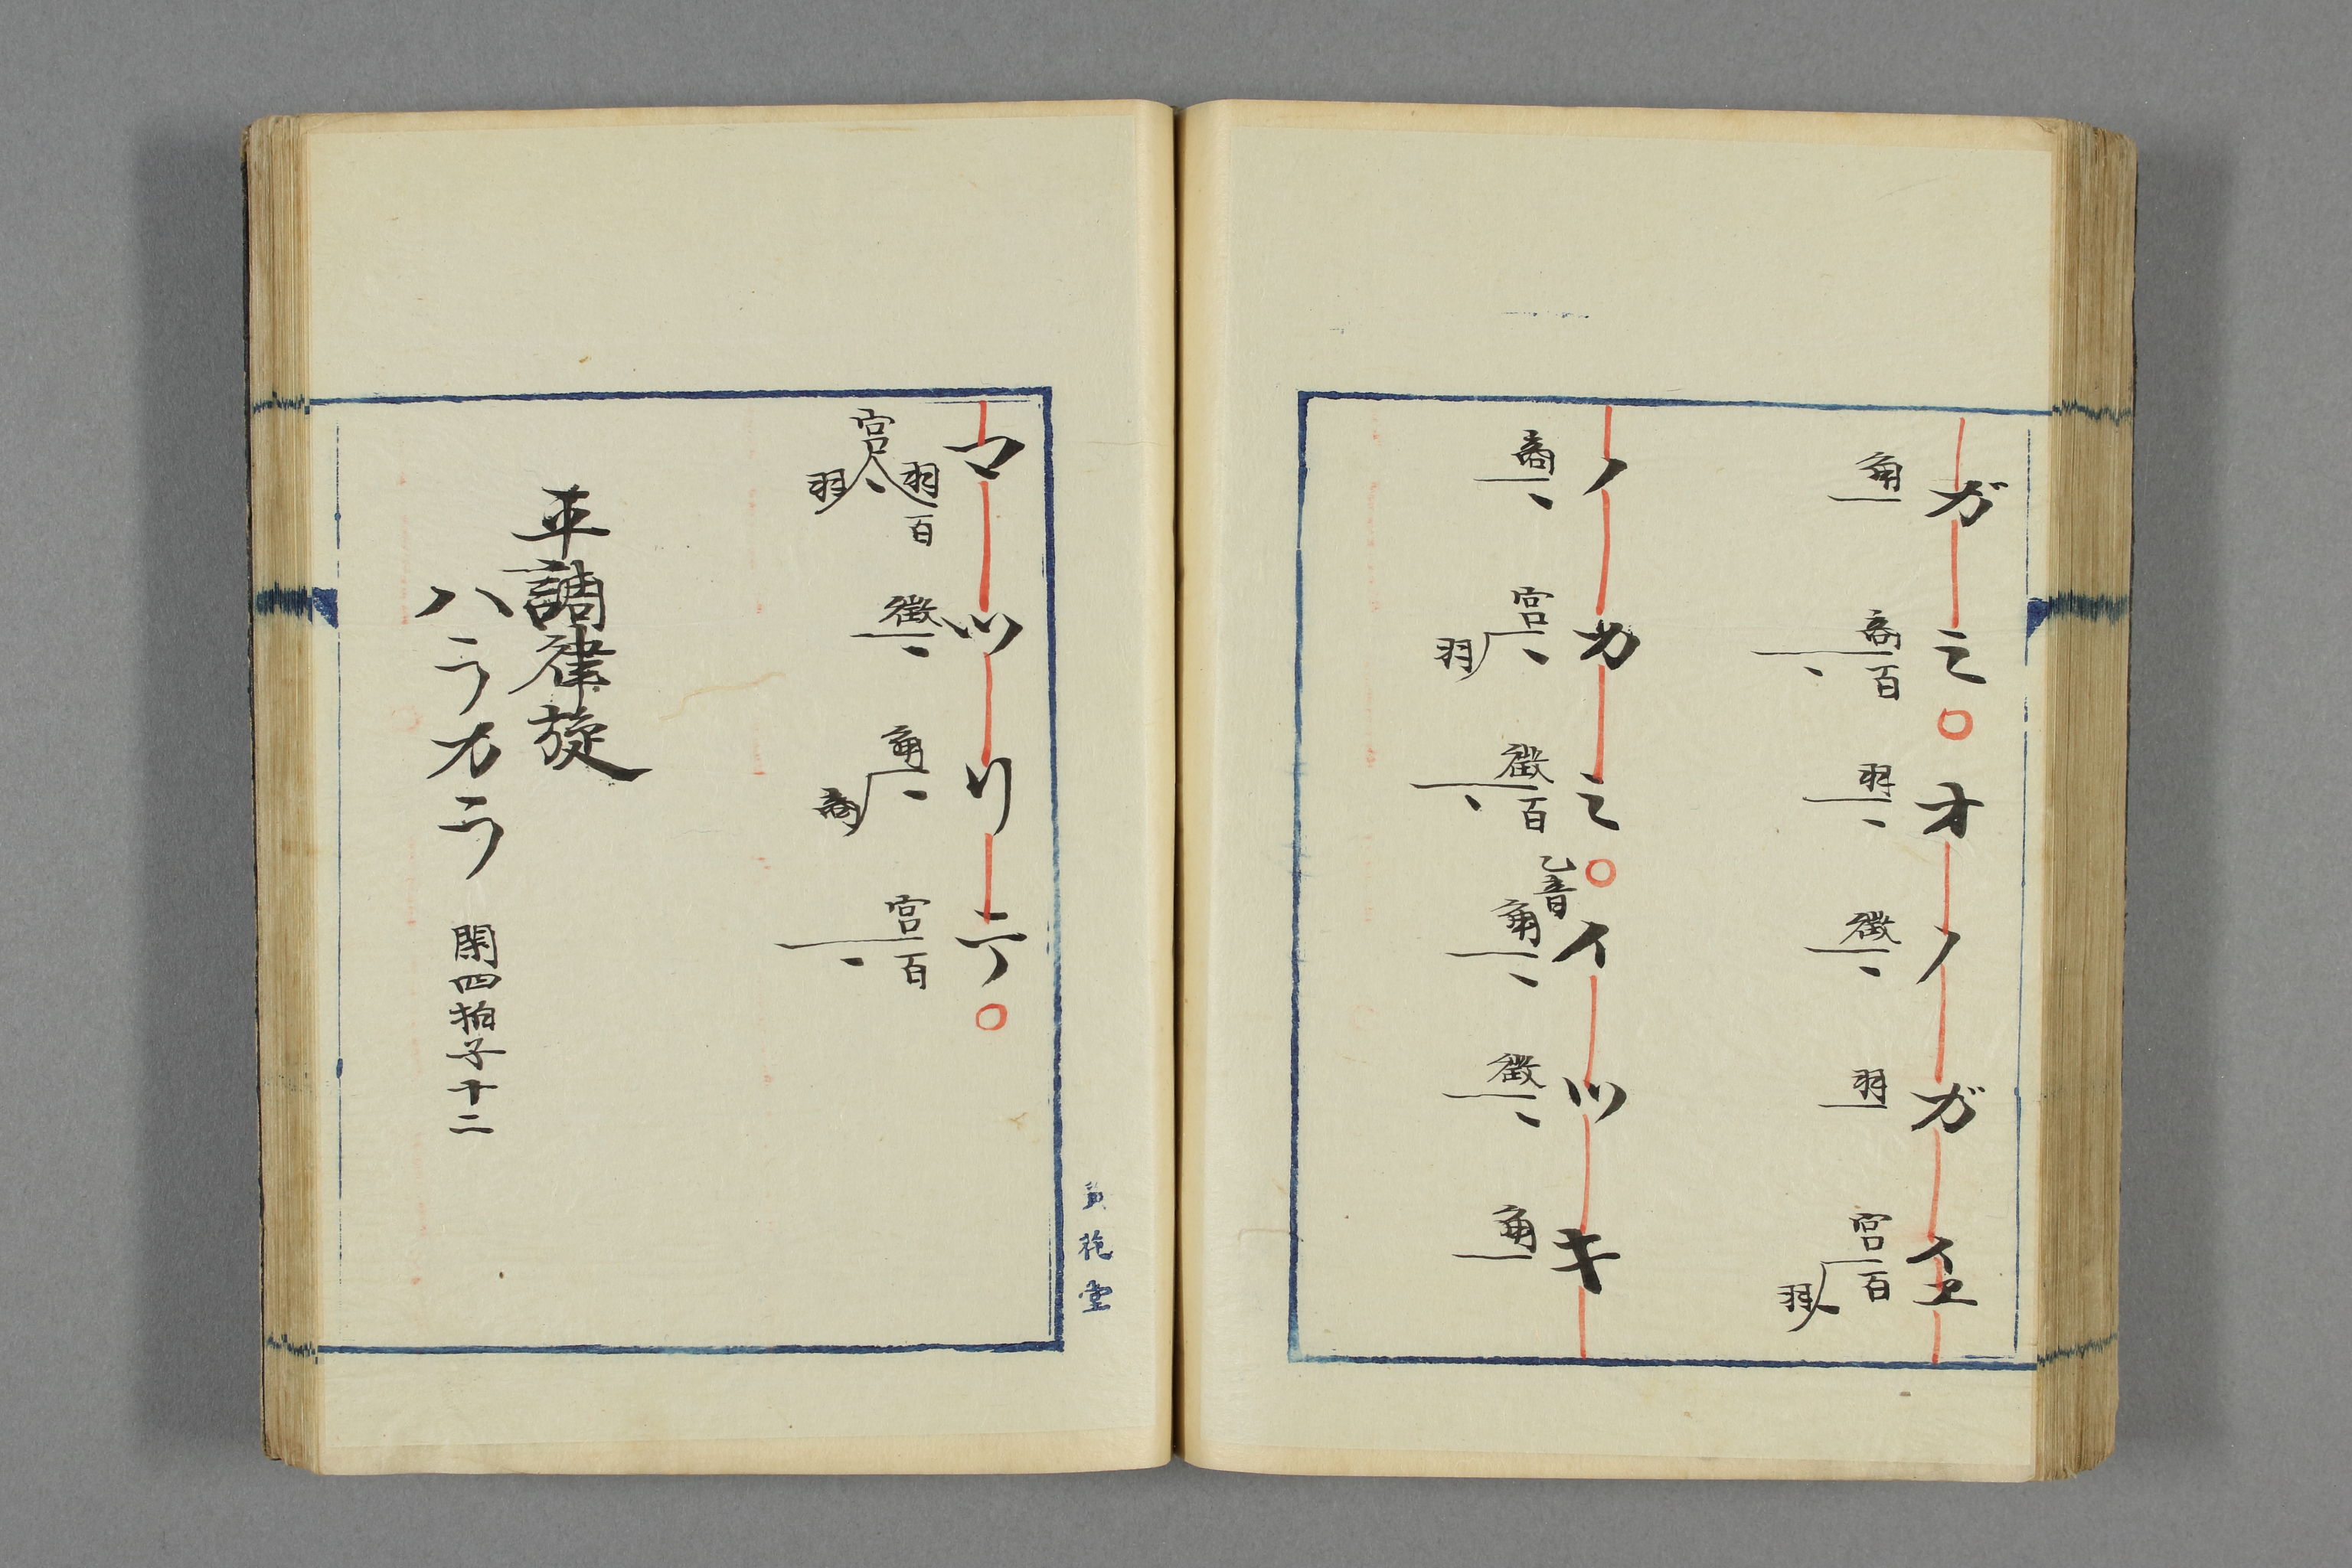 ガミ〇オノガイヱ
角 商百 羽 徴 羽 宮百羽
ノカミ〇イツキ
商 宮羽 徴百 乙音 角 徴 角
マツリテ〇
羽百宮羽 徴 角商 宮百
平調律旋
ハラカラ 閑四拍子十二